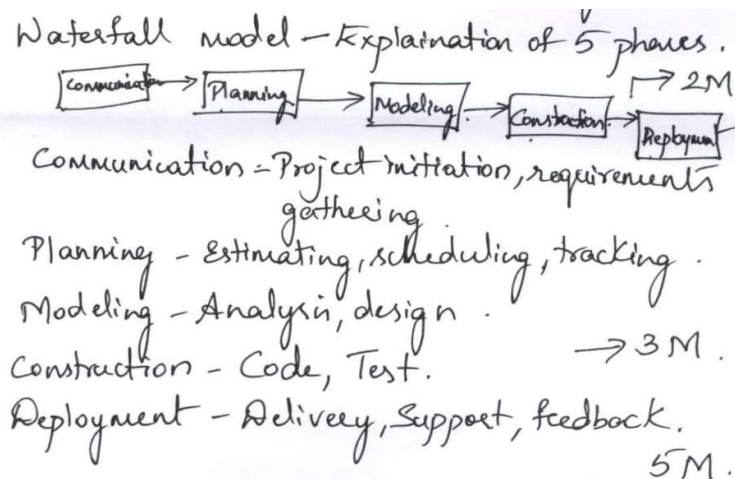 Waterfall model - Explaination of 5 phases.
Communication
Planning
Modeling
Constraction
Deploymen
→ 2M
Communication - Project initiation, requirements
gathering
Planning - Estimating, scheduling, tracking.
Modeling - Analysis, design.
→ 3M.
Construction - Code, Test.
Deployment - Delivery, Support, feedback.
5M.